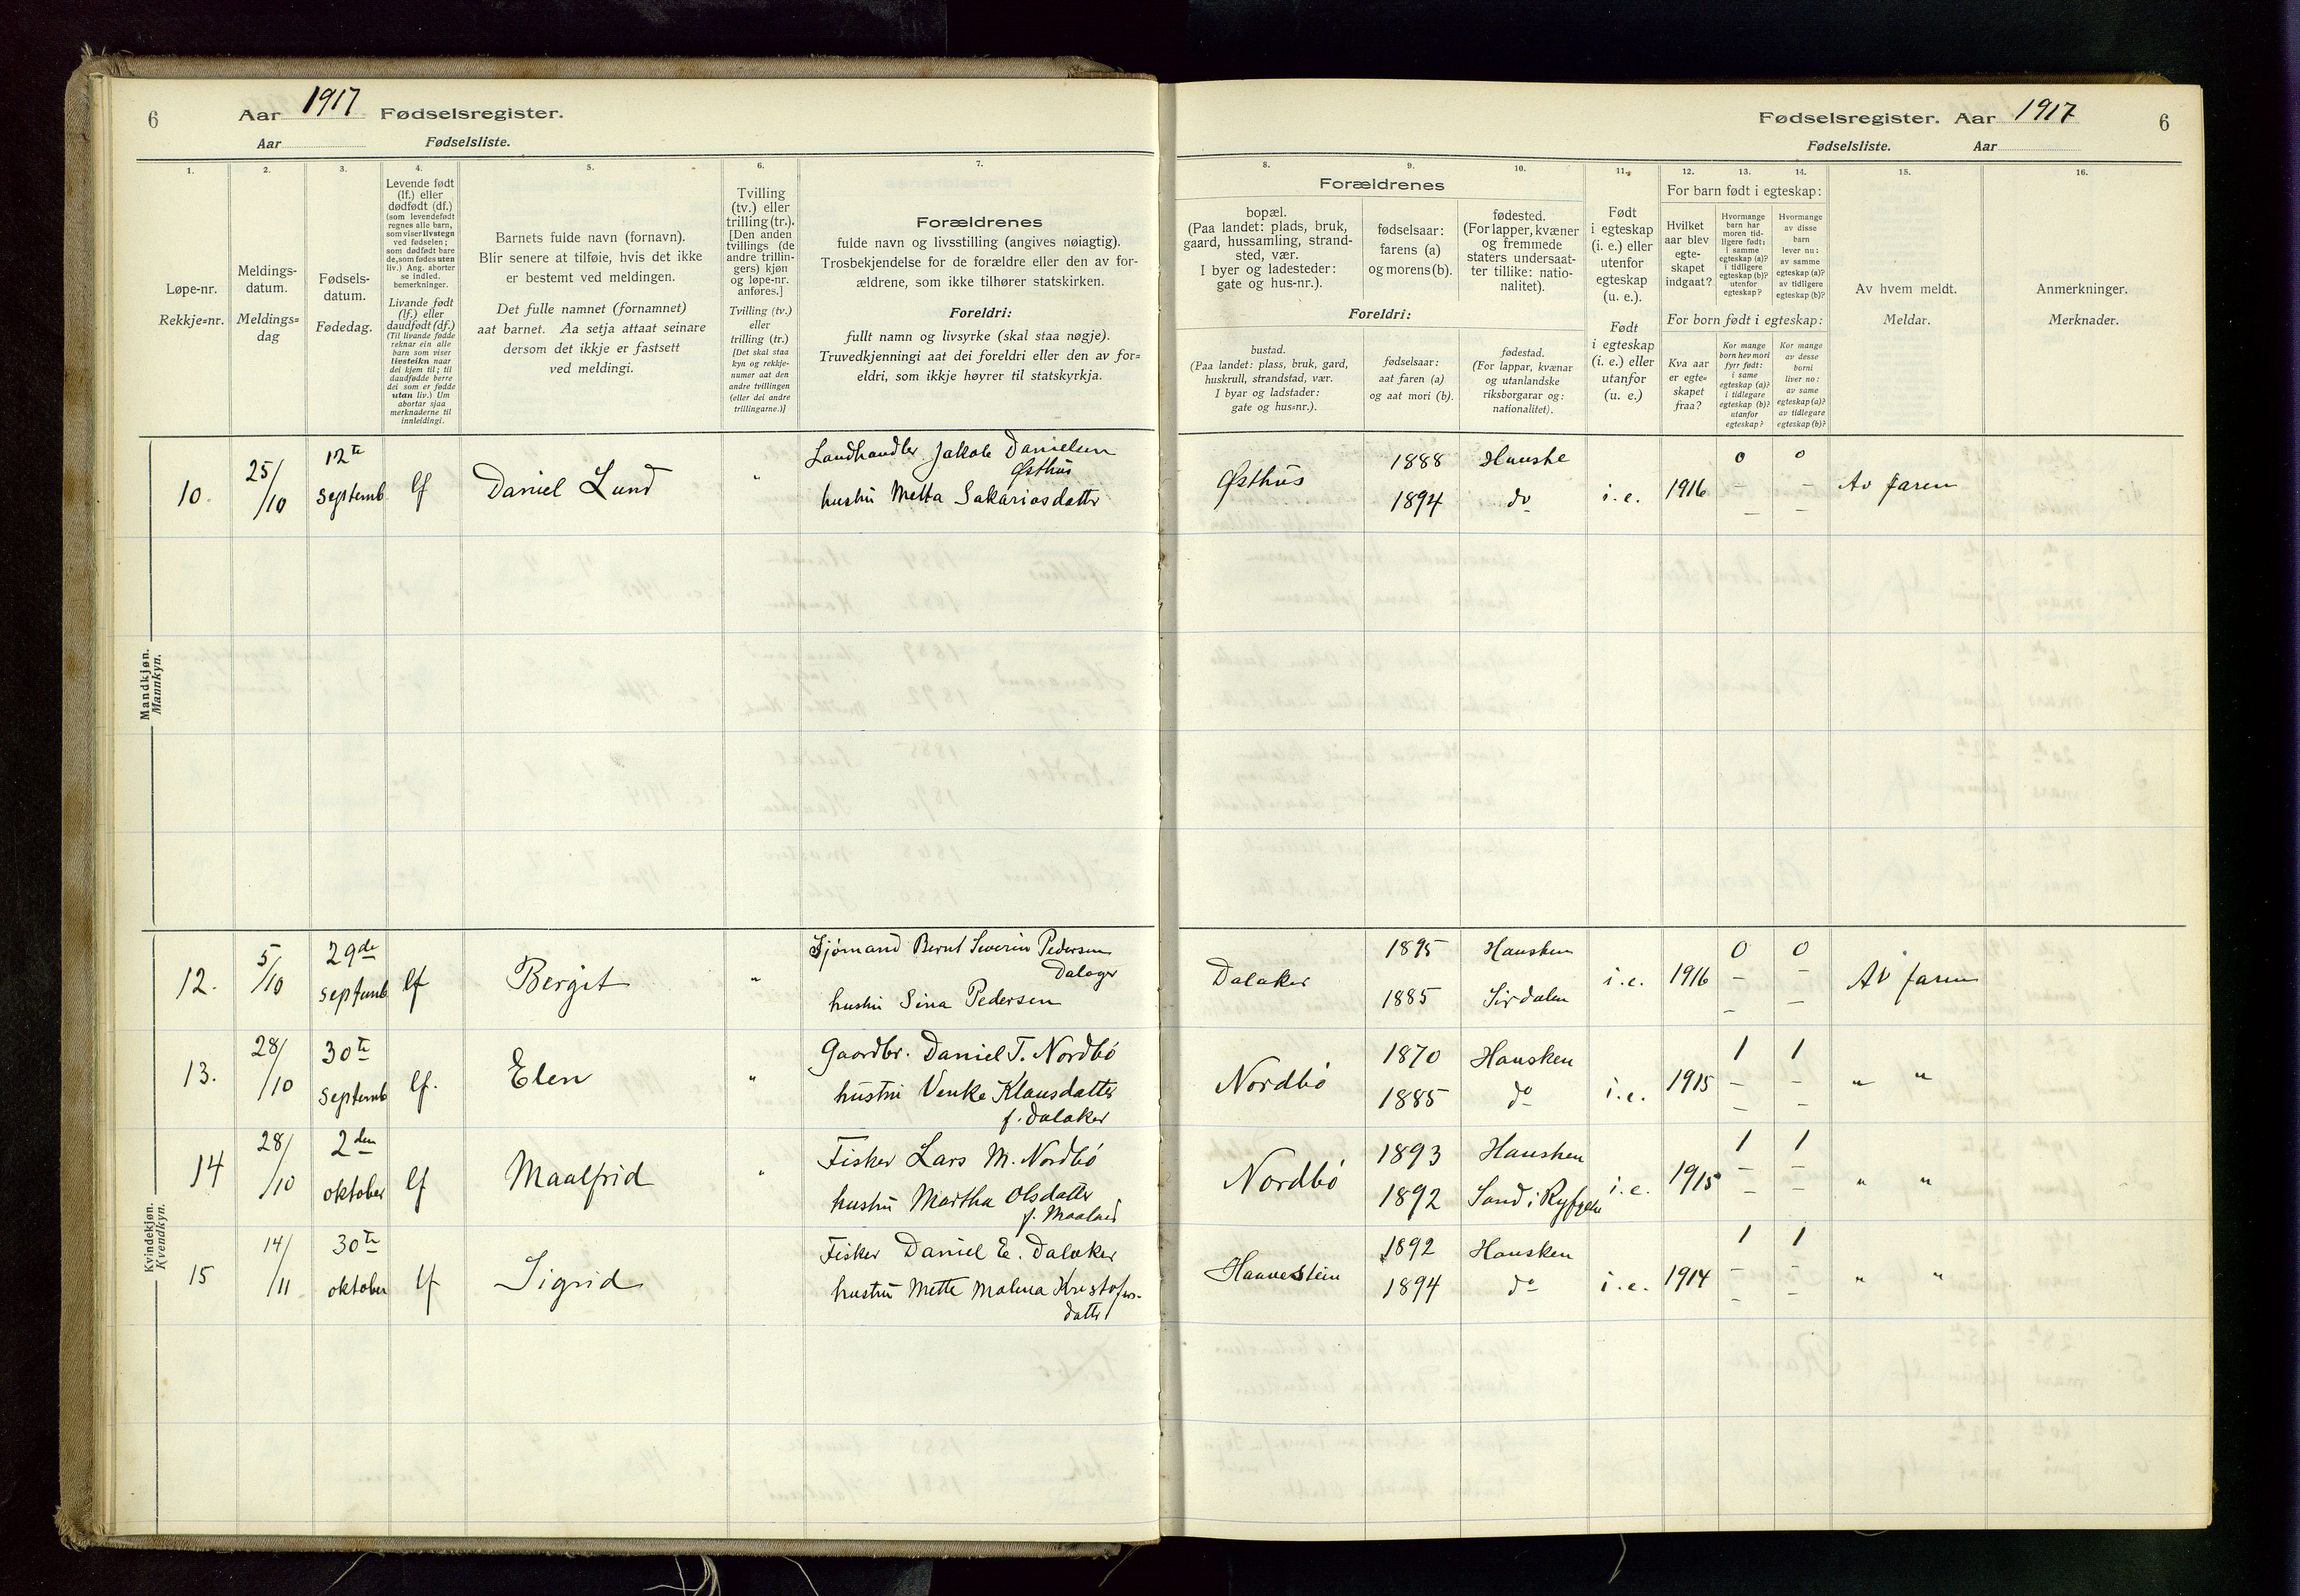 6
Aar 1917 Fødselsregister.
Aar Fødselsliste.
1.
2.
3.
4.
5.
6.
7.
Løpe-nr.
Rekkje=nr.
Meldings-
datum.
Meldings=
dag
Fødsels-
datum.
Fødedag.
Levende født
(lf.) eller
dødfødt (df.)
(som levendefødt
regnes alle barn,
som viser livstegn
ved fødselen;
som dødfødt bare
de, som fødes uten
liv.) Ang. aborter
se indled.
bemerkninger.
Livande født
(lf.) eller
daudfødt (df.)
(Til livande fødde
reknar ein alle
barn som viser
livsteikn naar
dei kjem til; til
daudfødde berre
dei som er fødde
utan liv.) Um
abortar sjaa
merknaderne til
innleidingi.
Barnets fulde navn (fornavn).
Blir senere at tilføie, hvis det ikke
er bestemt ved meldingen.
Det fulle namnet (fornamnet)
aat barnet. Aa setja attaat seinare
dersom det ikkje er fastsett
ved meldingi.
Tvilling
(tv.) eller
trilling (tr.).
[Den anden
tvillings (de
andre trillin-
gers) kjøn
og løpe-nr.
anføres.]
Tvilling (tv.)
eller
trilling (tr.)
[Det skal staa
kyn og rekkje-
numer aat den
andre tvillingen
(eller dei andre
trillingarne.)]
Forældrenes
fulde navn og livsstilling (angives nøiagtig).
Trosbekjendelse for de forældre eller den av for-
ældrene, som ikke tilhører statskirken.
Foreldri:
fullt namn og livsyrke (skal staa nøgje).
Truvedkjenningi aat dei foreldri eller den av for=
eldri, som ikkje høyrer til statskyrkja.
Mandkjøn.
Mannkyn.
10. 25/10 12te Septemb lf Daniel Lund " Landhandler Jakob Danielsen
Østhus
hustru Metta Sakariasdatter
Kvindekjøn.
Kvendkyn.
12. 5/10 29de Septemb lf Bergit " Sjömand Bernt Severin Pedersen
Dalager
hustru Sina Pedersen
13. 28/10 30te Septemb lf. Elen " Gaardbr. Daniel T. Nordbö
hustru Venke Klausdatter
f. Dalaker
14 28/10 2den oktober lf Maalfrid " Fisker Lars M. Nordbö
hustru Martha Olsdatter
f. Maaland
15 14/11 30te oktober lf Sigrid Fisker Daniel E. Dalaker
hustru Mette Malena Kristofers-
datter
Fødselsregister. Aar 1917
6
Fødselsliste. Aar
8.
9.
10.
11.
12.
13.
14.
15.
16.
Forældrenes
bopæl.
(Paa landet: plads, bruk,
gaard, hussamling, strand-
sted, vær.
I byer og ladesteder:
gate og hus-nr.).
fødselsaar:
farens (a)
og morens (b).
fødested.
(For lapper, kvæner
og fremmede
staters undersaat-
ter tillike: natio-
nalitet).
Foreldri:
bustad.
(Paa landet: plass, bruk, gard,
huskrull, strandstad, vær.
I byar og ladstader:
gate og hus=nr.).
fødselsaar:
aat faren (a)
og aat mori (b).
fødestad.
(For lappar, kvænar
og utanlandske
riksborgarar og:
nationalitet).
Født
i egteskap
(i. e.) eller
utenfor
egteskap
(u. e.).
Født
i egteskap
(i. e.) eller
utanfor
(u. e.)
For barn født i egteskap:
Hvilket
aar blev
egte-
skapet
indgaat?
Hvormange
barn har
moren tid-
ligere født:
i samme
egteskap (a)?
i tidligere
egteskap (b)?
utenfor
egteskap?
Hvormange
av disse
barn
lever nu:
av samme
egteskap (a)?
av tidligere
egteskap (b)?
For born født i egteskap:
Kva aar
er egte=
skapet
fraa?
Kor mange
born hev mori
fyrr født:
i same
egteskap (a)?
i tidlegare
egteskap (b)?
utanfor
egteskap?
Kor mange
av desse
borni
liver no:
av same
egteskap (a)?
av tidlegare
egteskap (b)?
Av hvem meldt.
Meldar.
Anmerkninger.
Merknader.
Østhus 1888 Hauske i. e. 1916 0 0 Av faren
1894 do
Dalaker 1895 Hausken i. e. 1916 0 0 Av faren
1885 Sirdalen
Nordbö 1870 Hausken i. e. 1915 1 1 " "
1885 do
Nordbö 1893 Hausken i. e. 1915 1 1 " "
1892 Sand i Ryfylke
Hauvestein 1892 Hausken i. e. 1914 1 1 " "
1894 do